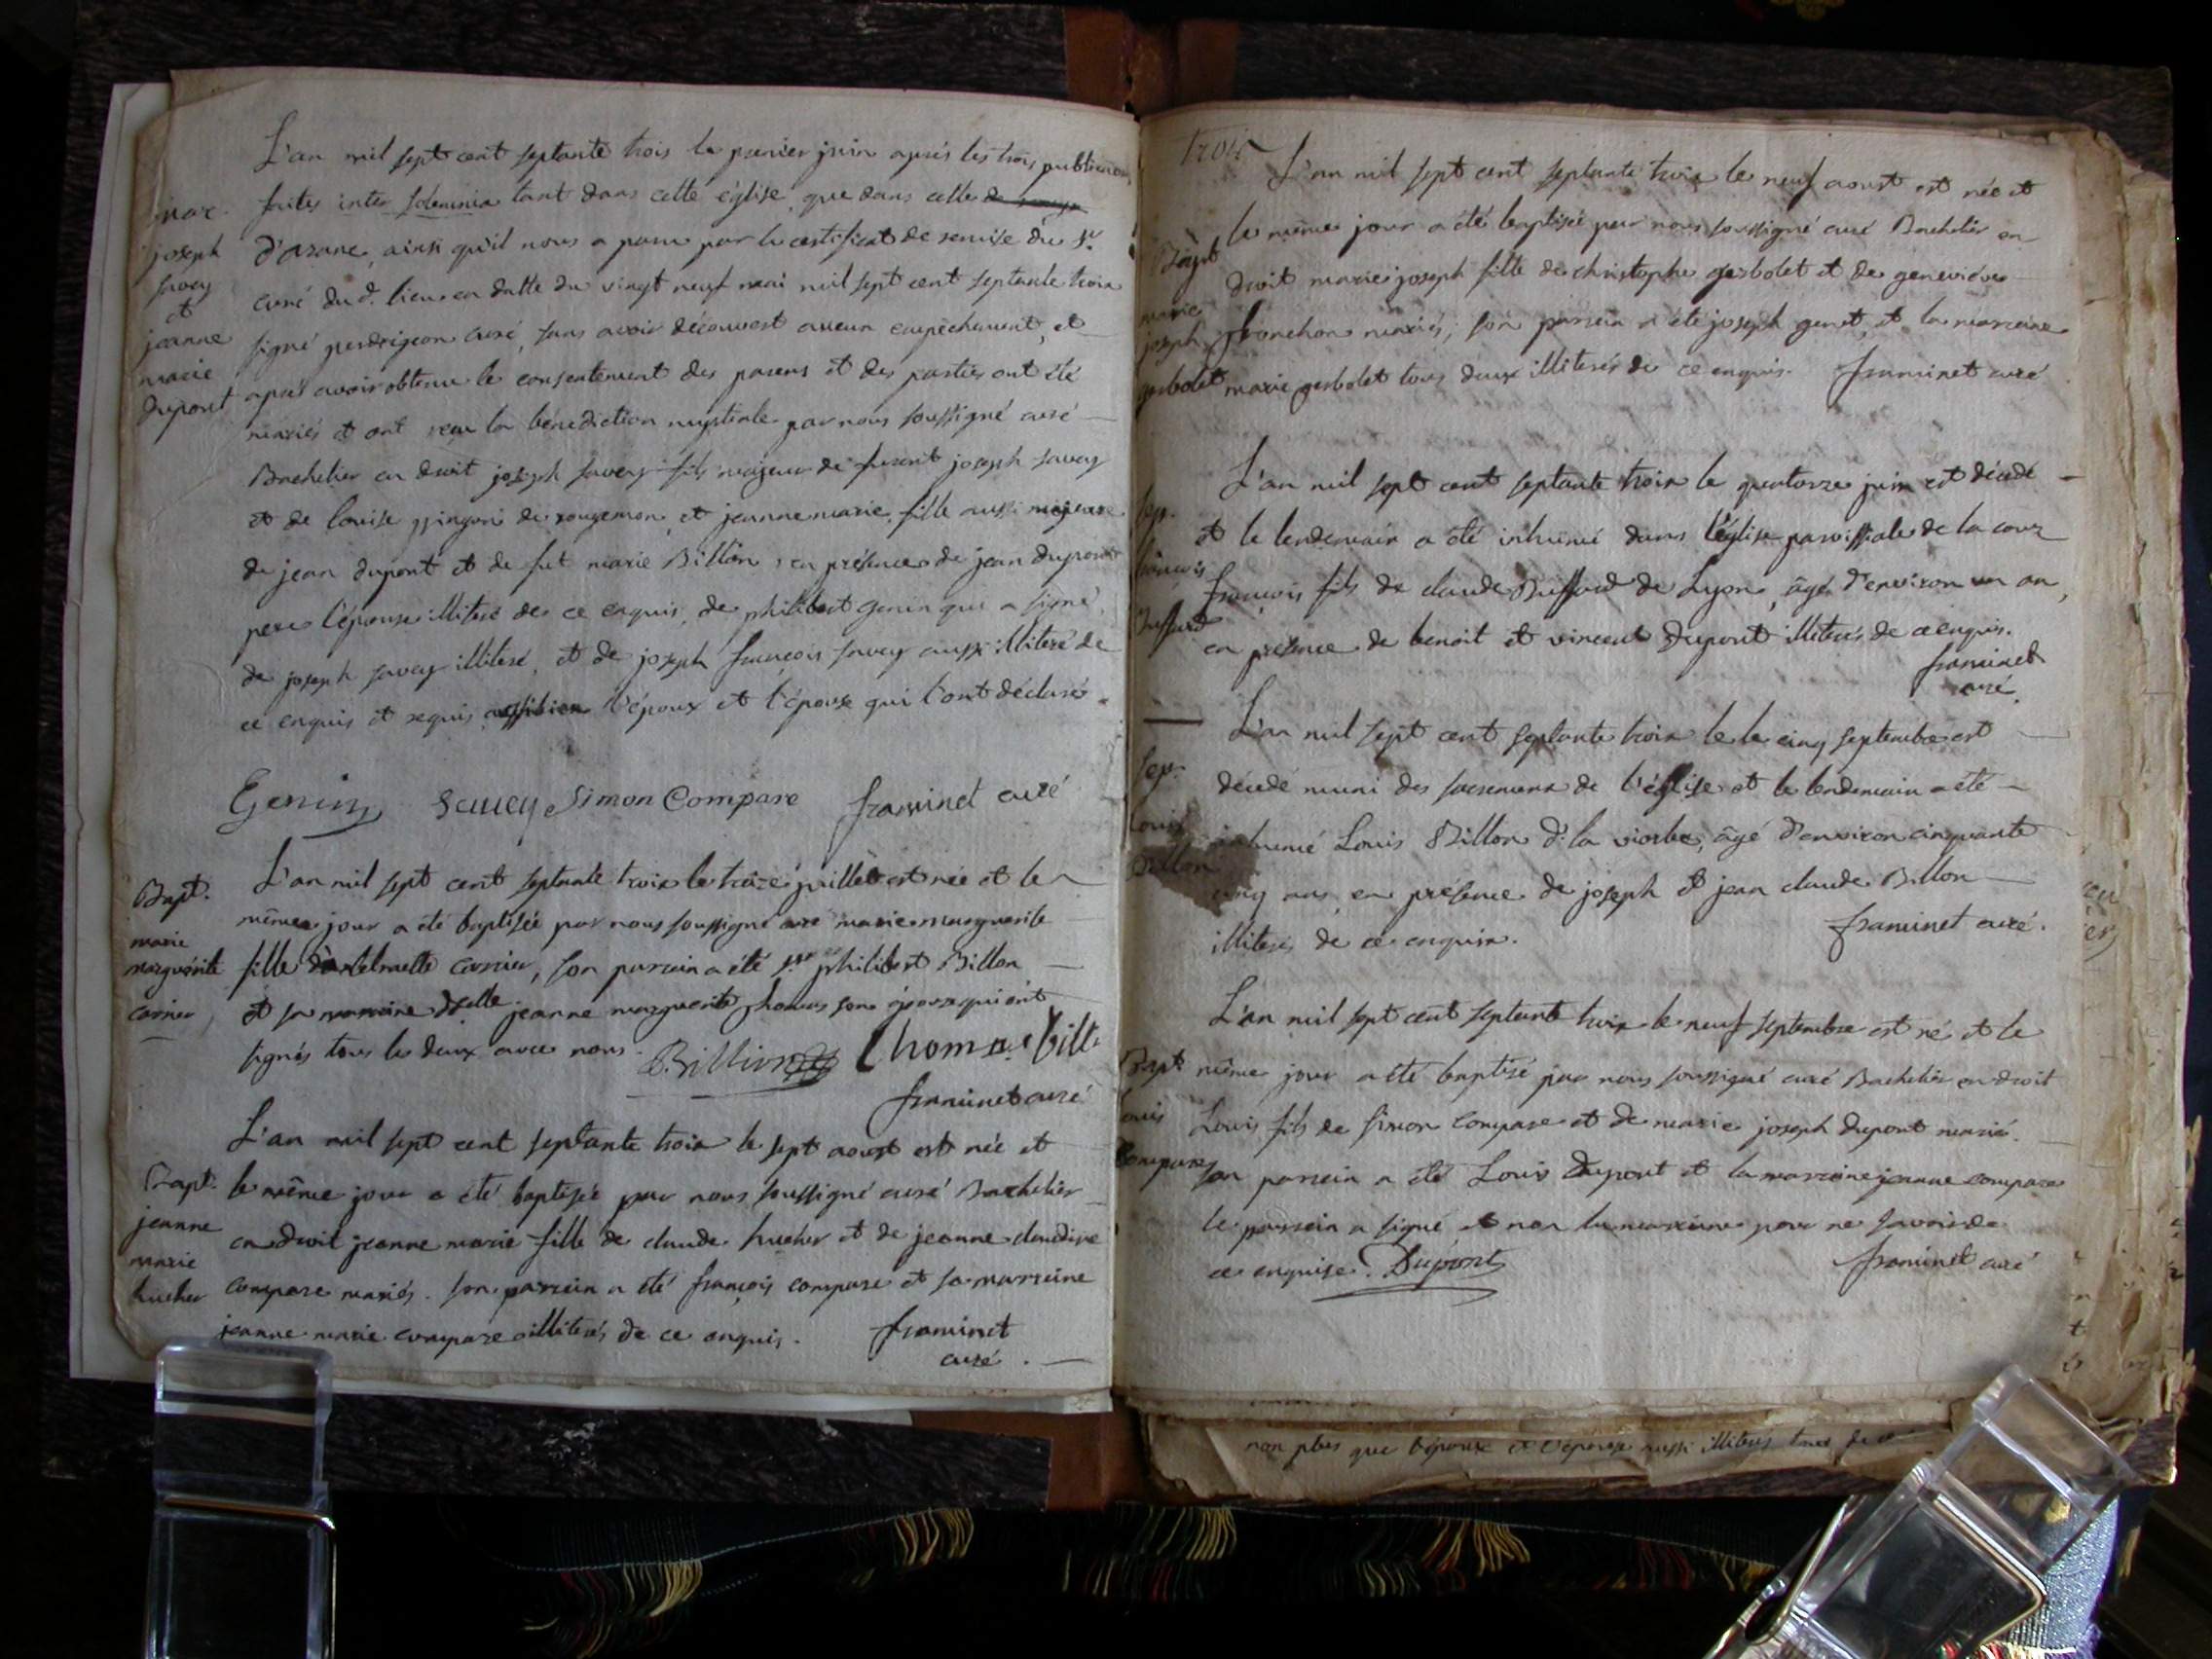 L'an mil sept cent septante trois le premier juin aprés les trois publications
faites inter solemnia tant dans cette église que dans celle de
d'arane, ainsi qu'il nous a paru par le certificat de remise du Sr
curé du d. lieu en datte du vingt neuf mai mil sept cent septante trois
signé perdrigeon curé, sans avoir découvert aucun empechement, et
aprés avoir obtenu le consentement des parens et des parties ont été
mariés et ont reçu la bénediction nuptiale par nous soussigné curé
Bachelier en droit joseph savey fils majeur de joseph savey
et de louise de rougemon, et jeanne marie, fille aussi majeure
de jean dupont et de fut marie Billion, en présence de jean dupont
pere l'épouse illiteré de ce enquis, de philibert genin qui a signé,
de joseph savey illiteré, et de joseph françois savey aussi illiteré de
ce enquis et requis aussi bien l'époux et l'épouse qui l'ont déclaré
mar.
joseph
savey
et
jeanne
marie
dupont
Genin Savey Simon Compare framinet curé
L'an mil sept cent septante trois le treize juillet est née et le
même jour a été baptisée par nous soussigné curé marie marguerite
fille cornier, son parrein a été Sr philibert Billon
et sa marreine Delle jeanne marguerite thomas son épouse qui ont
signés tous les deux avec nous. Billion Thomas bill.
framinet curé
Bapt.
marie
marguérite
cornier
L'an mil sept cent septante trois le sept aoust est née et
le même jour a été baptisée par nous soussigné curé Bachelier
en droit jeanne marie fille de claude hucher et de jeanne claudine
compare mariés. son parrein a été françois compare et sa marreine
jeanne marie compare illiterés de ce enquis. framinet
curé.
Bapt.
jeanne
marie
hucher
trois
L'an mil sept cent septante trois le neuf aoust est née et
le même jour a été baptisée par nous soussigné curé Bachelier en
droit marie joseph fille de christophe gesbolet et de genevieve
fronchon mariés; son parrein a été joseph genet, et la marreine
marie gesbolet tous deux illiterés de ce enquis. framinet curé
Bapt
marie
joseph
gesbolet
L'an mil sept cent septante trois le quatorze juin est décédé
et le lendemain a été inhumé dans l'église paroissiale de la cour
françois fils de claude Buffard de Lyon, âgé d'environ un an,
en présence de benoit et vincent Dupont illiterés de ce enquis.
framinet
curé.
sep.
françois
Buffard
L'an mil sept cent septante trois le le cinq septembre est
décédé muni des sacremens de l'église et le lendemain a été
inhumé Louis Billon d. la viorbe, âgé d'environ cinquante
cinq ans, en présence de joseph et jean claude Billon
illiterés de ce enquis. framinet curé.
sep.
Louis
Billon
L'an mil sept cent septante trois le neuf septembre est né et le
même jour a été baptisé par nous soussigné curé Bachelier en droit
Louis fils de simon compare et de marie joseph dupont mariés.
son parrein a été Louis Dupont et la marreine jeanne compare
le parrein a signé et non la marreine pour ne savoir de
ce enquise. Dupont framinet curé
Bapt
Louis
Compare
non plus que l'époux et l'épouse aussi illiterés tous de ce